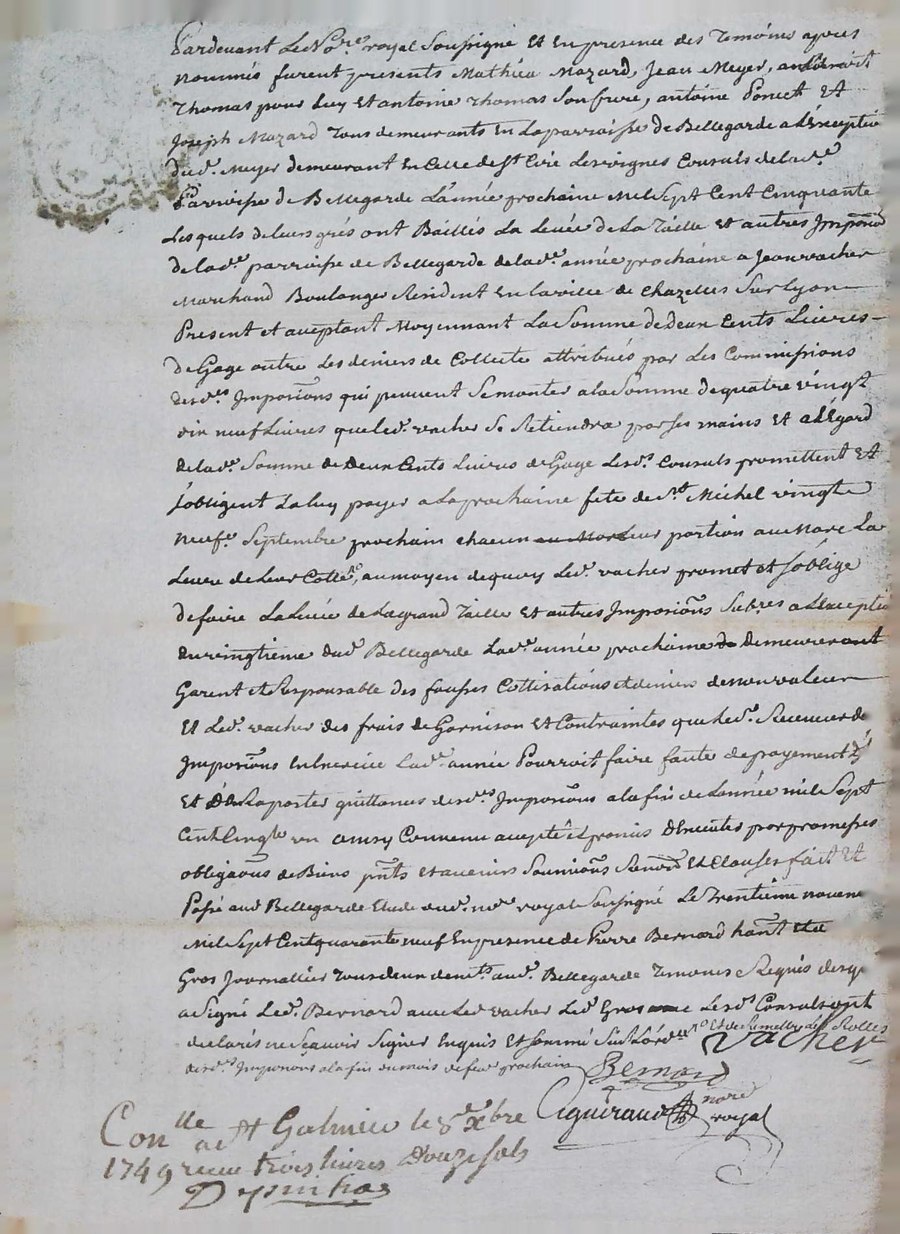 Pardevant Le No.re royal Soussigné Et En presence des Temoins apres
nommés furent presents Mathieu Mazard, Jean Meyer,
Thomas pour Luy Et antoine Thomas Son frere, antoine Poncet Et
Joseph Mazard Tous demeurants En La parroisse de Bellegarde a L'Exceptio
dud. Meyer demeurant en Celle de St Cire Les vignes Consuls de lad.e
Parroisse de Bellegarde L'année prochaine Mil Sept Cent Cinquante
Lesquels de leurs grés ont Baillés La Levée de La Taille Et autres Impons
de lad.e parroisse de Bellegarde de lad.e année prochaine a Jean vacher
Marchand Boulanger Resident En la ville de Chazelles Sur Lyon
Present et aceptant Moyennant La Somme de deux Cents Livres
de Gage outre Les deniers de Collecte attribués par Les Commissions
desd.es Impositons qui peuvent Se monter a la Somme de quatre vingt
dix neuf Livres que led. vacher Se Retiendra par Ses mains Et a L'Egard
de lad. Somme de deux Cents Livres de Gage Lesd.s Consuls promettent Et
s'obligent La luy payer a La prochaine fete de St Michel vingte
neuf.e Septembre prochain chacun leur portion au Marc La
Livre de Leur Cotte, au moyen de quoy Led. vacher promet et s'oblige
de faire La Levée de La grand Taille Et autres Impositons a L'Exceptio
du vingtieme dud. Bellegarde Lad.e année prochaine demeureront
Garent et Responsable des fausses Cottisations et deniers de non valeur
Et Led. vacher des frais de Garnison Et Contraintes que Le Sr. Receveur de
Impositons lad. année Pourroit faire faute de payement
Et de Raporter quittances desd.es Impositons a la fin de L'année mil Sept
Cent Cinq.te un ainsy Convenu accepté et promis d'Executer par promesses
obligaõns de Biens pnts et avenirs Soumiõns Et Clauses fait Et
Passé aud. Bellegarde Etude dud. no.re royal Soussigné Le Trentieme novem
Mil Sept Cent quarante neuf En presence de Pierre Bernard
Gros Journallier Tous deux dem.ts aud. Bellegarde Temoins Requis desq
a Signé Led. Bernard avec Led. vacher Led. Gros Lesd.s Consuls ont
declaré ne Sçavoir Signer Enquis Et Sommé
desd.es Impositons a la fin du mois de fev.er prochain
Vacher
Bernard
Guiraud nore royal
Con.lle a St Galmier le 8e xbre
1749 receu trois livres Douze sols